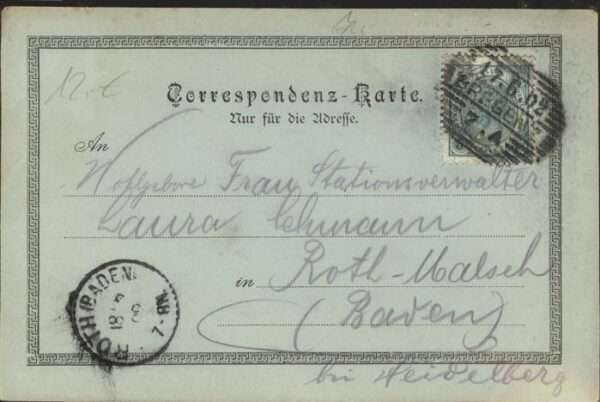 12.-€
Correspondenz-Karte.
Nur für die Adresse.
17.6.02
BREGENZ
7.A
An
Wohlgebore Frau Stationsverwalter
Laura Lehmann
in Roth-Malsch
(Baden)
bei Heidelberg
ROTH (BADEN)
18 6
7-8N.